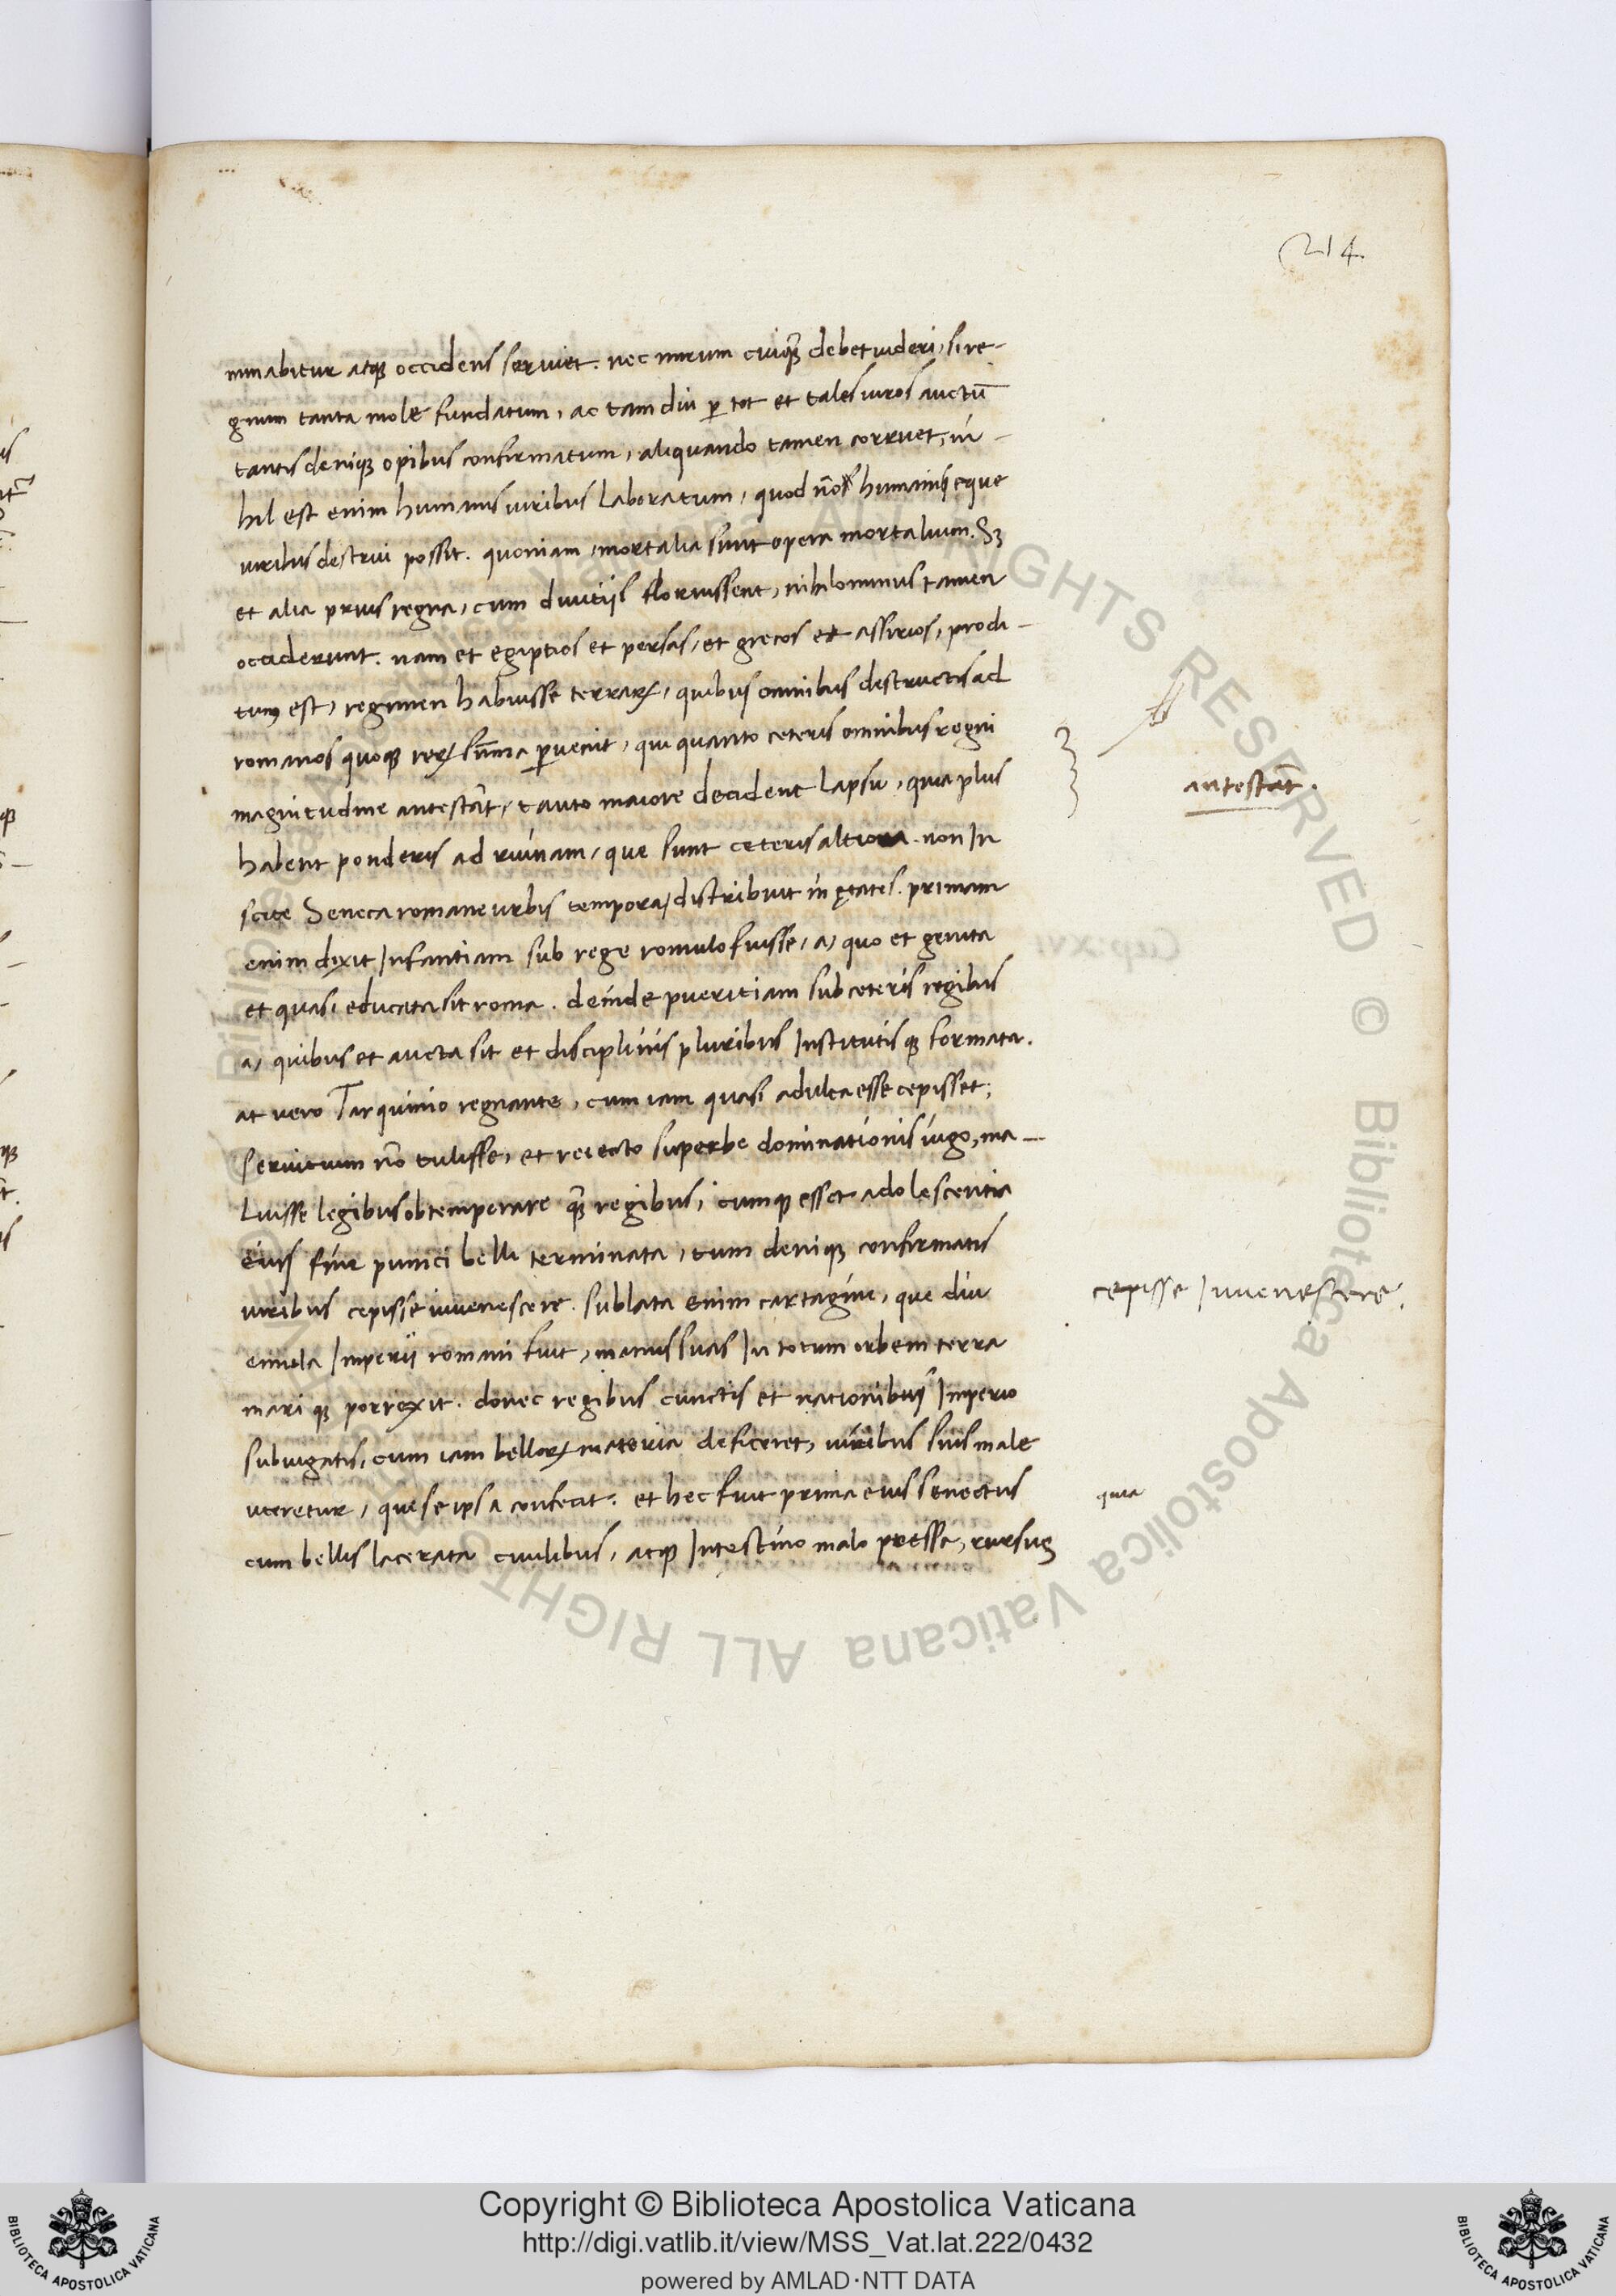 214
minabitur atq̃ occidens seruiet. nec mirum cuiq̃ debet uideri, si re-
gnum tanta mole fundatum, ac tam diu p̱ tot et tales uiros auctũ
tantis deniq̃ opibus confirmatum, aliquando tamen corruet, ni-
hil est enim humanis uiribus laboratum, quod nõ humanis eque
uiribus destrui possit. quoniam, mortalia sunt opera mortalium. Sꝫ
et alia prius regna, cum diutiis floruissent, nihilominus tamen
occiderunt. nam et egiptios et persas, et grecos et assirios, prodi-
tum est, regimen habuisse terraꝝ, quibus omnibus destructis ad
romanos quoq̃ reꝝ sũma ꝑuenit, qui quanto ceteris omnibus regni
magnitudine antestãt, tanto maiore decident lapsu, quia plus
antestãt.
habent ponderis ad ruinam, que sunt ceteris altiora. non In
scite Seneca romane urbis tempora, distribuit in ętates. primam
enim dixit Infantiam sub rege romulo fuisse, a, quo et genita
et quasi educata sit roma. deinde pueritiam sub ceteris regibus
a, quibus et aucta sit et disciplinis pluribus Institutis q̃ formata.
at uero Tarquinio regnante, cum iam quasi adulta esse cepisset;
seruitium nõ tulisse, et reiecto superbe dominationis iugo, ma-
Luisse legibus obtemperare q̃ regibus, cumq̃ esset adolescentia
eius fine punici belli terminata, tum deniq̃ confirmatis
uiribus cepisse iuuenescere. sublata enim cartagine, que diu
cepisse Iuuenescere.
emula Imperii romani fuit, manus suas In totum orbem terra
mari q̃ porrexit. donec regibus cunctis et nationibus Imperio
subiugatis, cum iam belloꝝ materia deficeret, uiribus suis male
uteretur, que se ipsa confecit. et hec fuit prima eius senectus
quia
cum bellis lacerata ciuilibus, atq̃ Intestino malo pressa, rursus
Copyright © Biblioteca Apostolica Vaticana
http://digi.vatlib.it/view/MSS_Vat.lat.222/0432
powered by AMLAD·NTT DATA